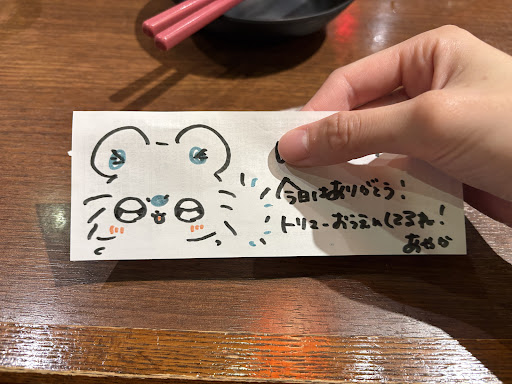 今日はありがとう！
トリマーおうえんしてるね！
あやか